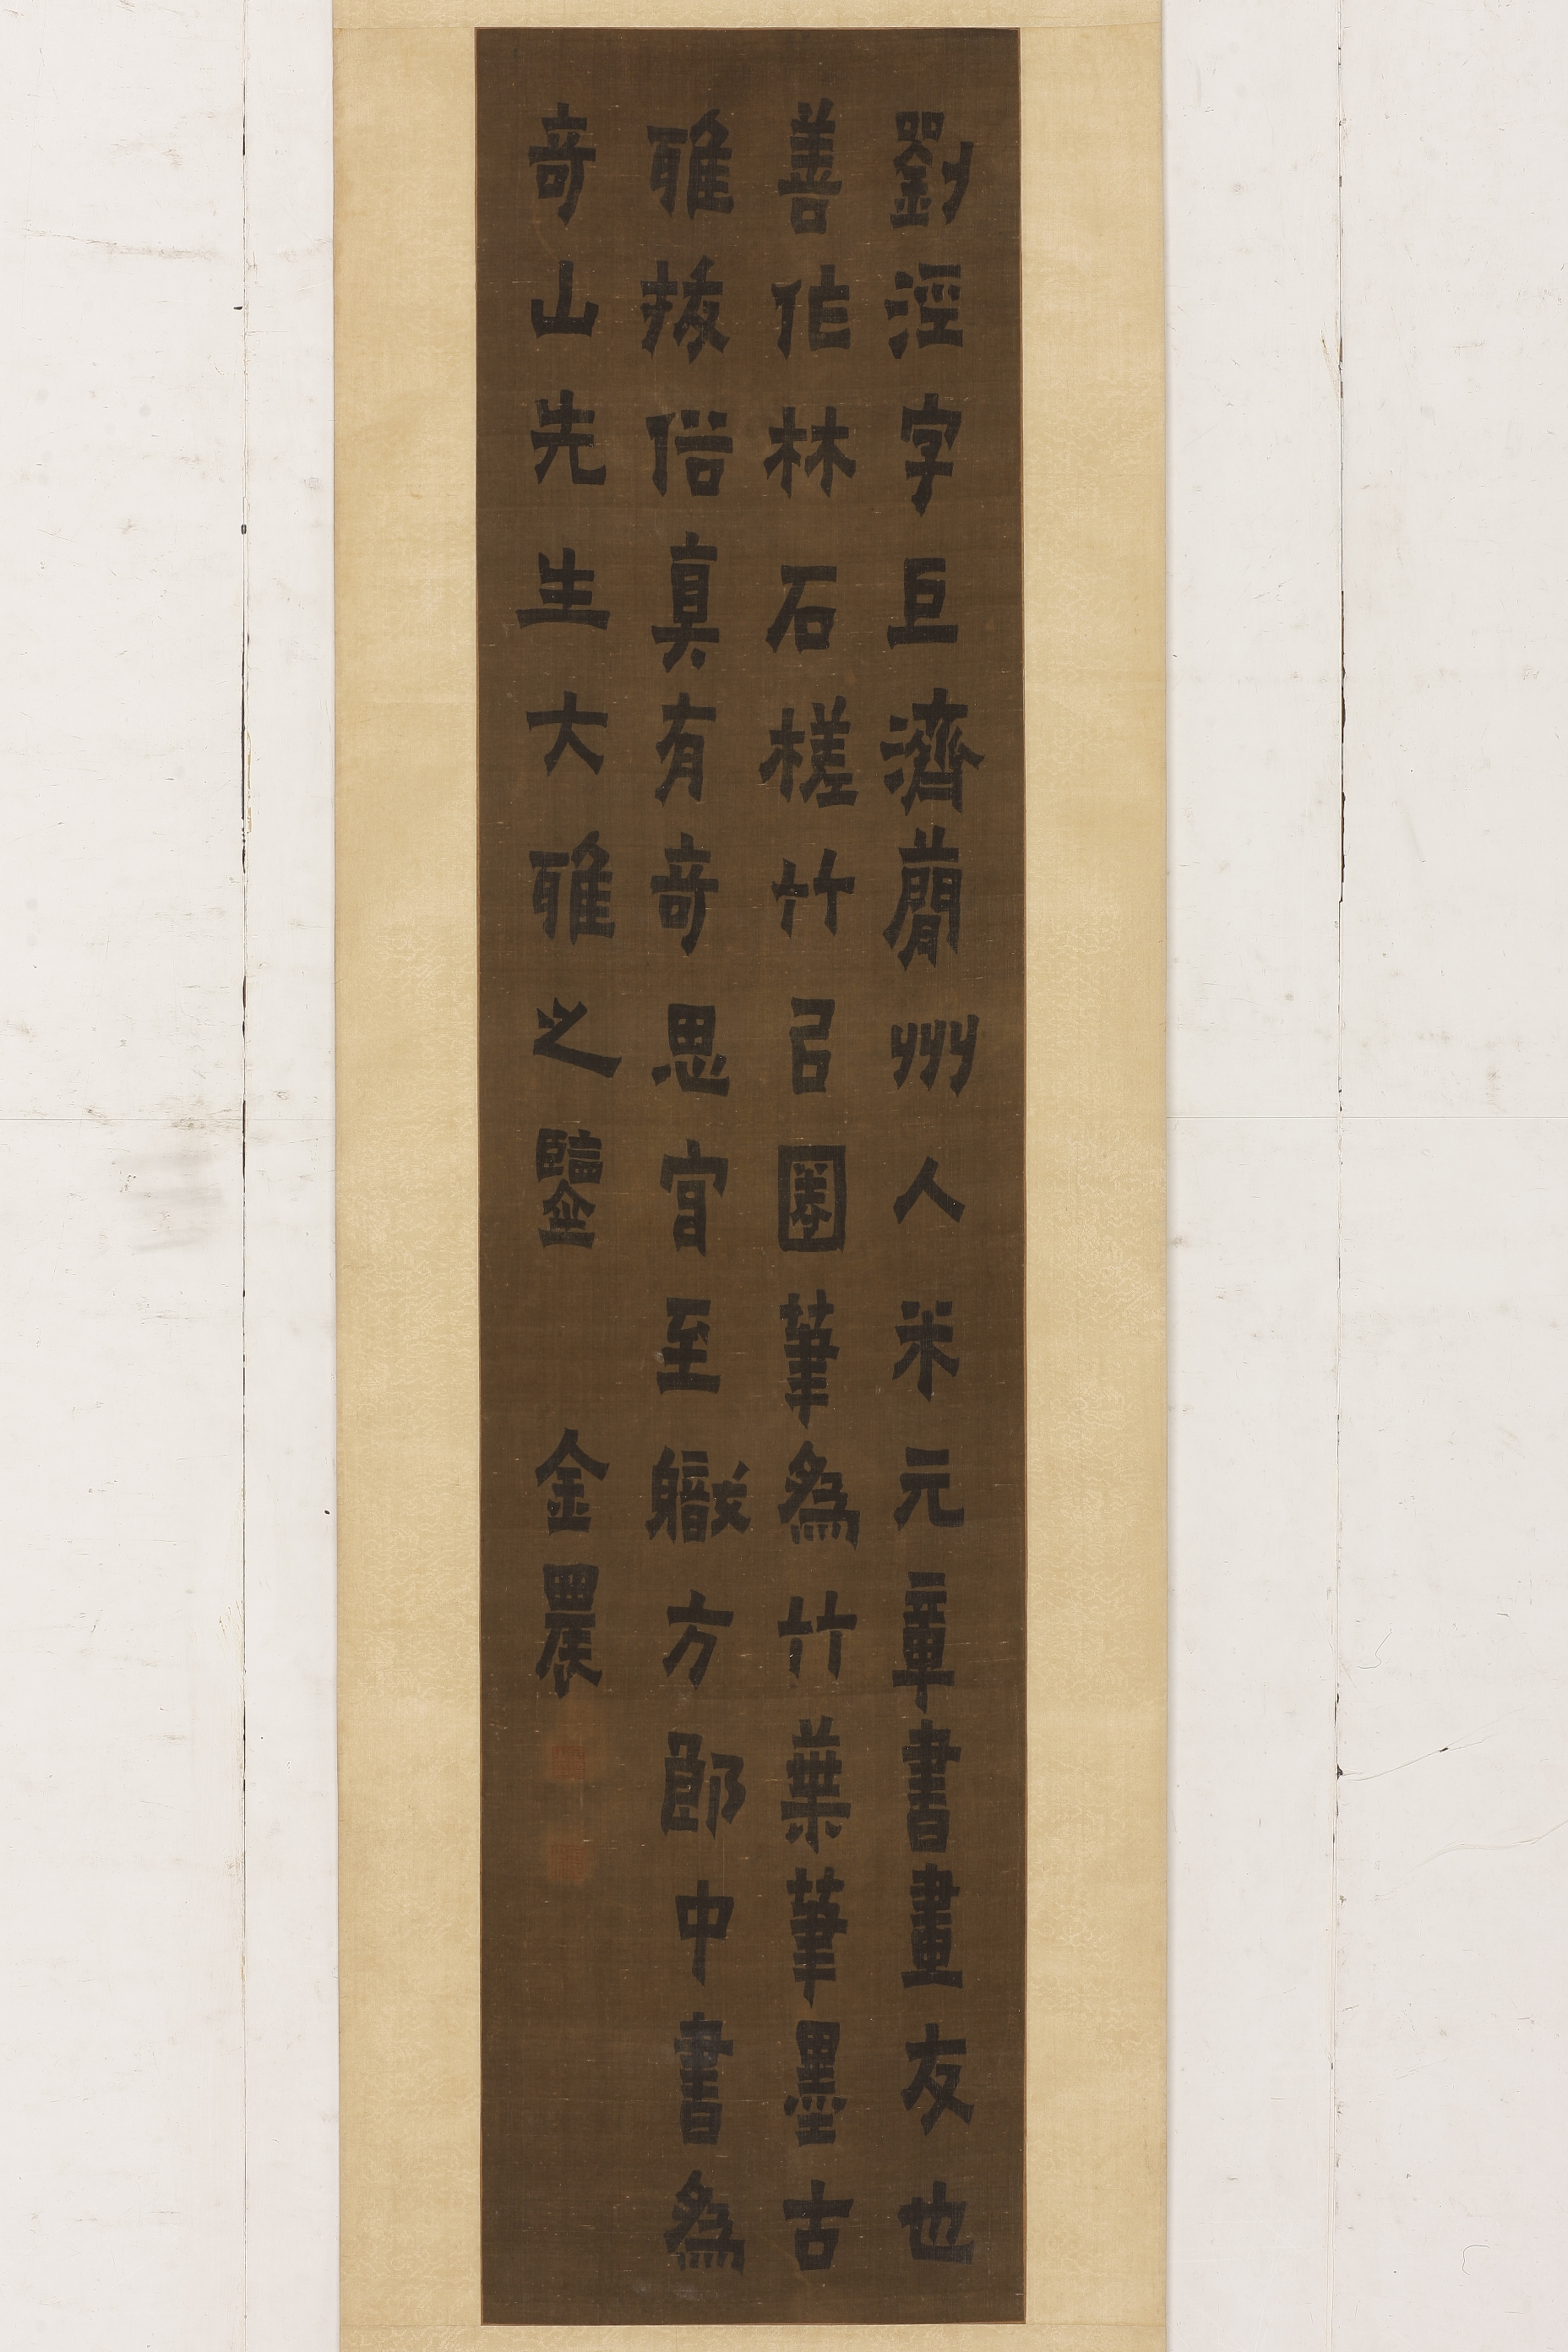 劉涇字巨濟蕳州人米元章書畫友也
善作林石槎竹㠯圈筆為竹葉筆墨古
雅拔俗真有奇思官至職方郎中書為
奇山先生大雅之鑒 金農